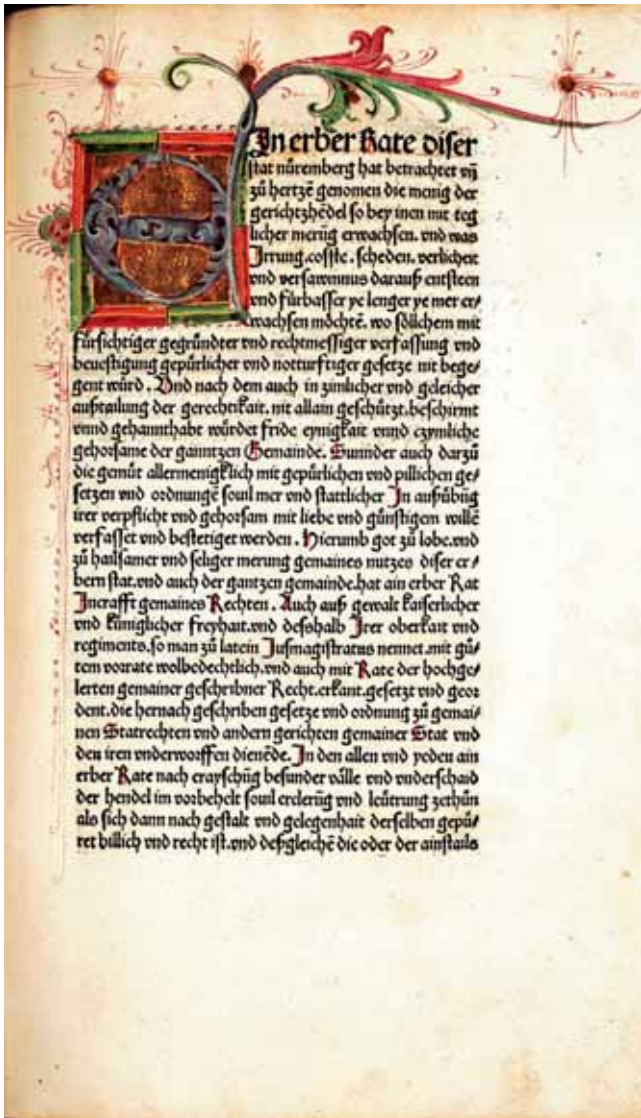 EIn erber Rate diser
stat nũremberg hat betrachtet vñ
zů hertzẽ genomen die menig der
gerichtzhẽdel so bey inen mit teg
licher merũg erwachsen. vnd was
Irrung. cosste. scheden. verlickeit
vnd versawmnus darauß entsteen
vnd fürbasser ye lenger ye mer er⸗
wachsen möchtẽ. wo söllchem mit
fürsichtiger gegründter vnd rechtmessiger verfassung vnd
beuestigung gepürlicher vnd notturftiger gesetze nit bege⸗
gent würd. Vnd nach dem auch in zimlicher vnd geleicher
außtailung der gerechtikait. nit allain geschützt. beschirmt
vnnd gehannthabt würdet fride eynigkait vnnd czymliche
gehorsame der ganntzen Gemainde. Sunnder auch darzů
die gemüt allermenigklich mit gepürlichen vnd pillichen ge⸗
setzen vnd ordnungẽ souil mer vnd stattlicher In außübũg
irer verpflicht vnd gehorsam mit liebe vnd günstigem willẽ
verfasset vnd bestetiget werden. Hierumb got zů lobe. vnd
zů hailsamer vnd seliger merung gemaines nutzes diser er⸗
bern stat. vnd auch der gantzen gemainde. hat ain erber Rat
Incrafft gemaines Rechten. Auch auß gewalt kaiserlicher
vnd küniglicher freyhait. vnd desshalb Irer oberkait vnd
regiments. so man zů latein Jusmagistratus nennet. mit gů⸗
tem vorrate wolbedechtlich. vnd auch mit Rate der hochge⸗
lerten gemainer geschribner Recht. erkant. gesetzt vnd geor
dent. die hernach geschriben gesetze vnd ordnung zů gemai⸗
nen Statrechten vnd andern gerichten gemainer Stat vnd
den iren vnderworffen dienẽde. In den allen vnd yeden ain
erber Rate nach erayschũg besunder välle vnd vnderschaid
der hendel im vorbehelt souil erclerũg vnd leütrung zethůn
als sich dann nach gestalt vnd gelegenhait derselben gepü⸗
ret billich vnd recht ist. vnd deßgleichẽ die oder der ainstails